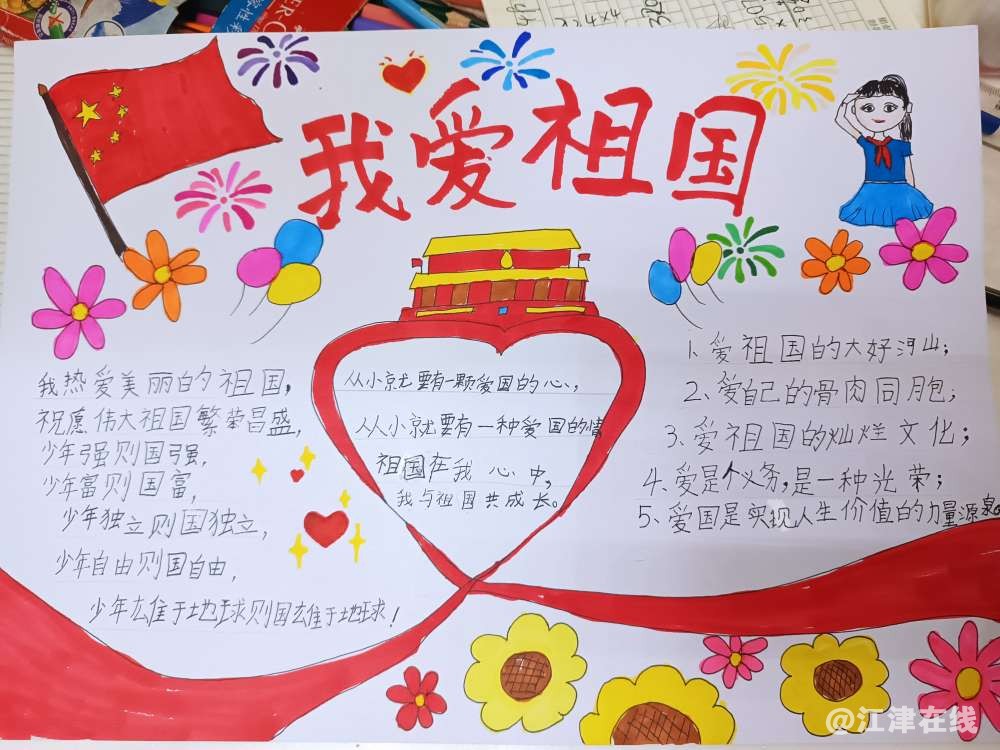 我爱祖国
我热爱美丽的祖国，
祝愿伟大祖国繁荣昌盛，
少年强则国强，
少年富则国富，
少年独立则国独立，
少年自由则国自由，
少年雄于地球则国雄于地球！
从小就要有一颗爱国的心，
从小就要有一种爱国的情
祖国在我心中，
我与祖国共成长。
1、爱祖国的大好河山；
2、爱自己的骨肉同胞；
3、爱祖国的灿烂文化；
4、爱是个义务，是一种光荣；
5、爱国是实现人生价值的力量源泉。
@江津在线